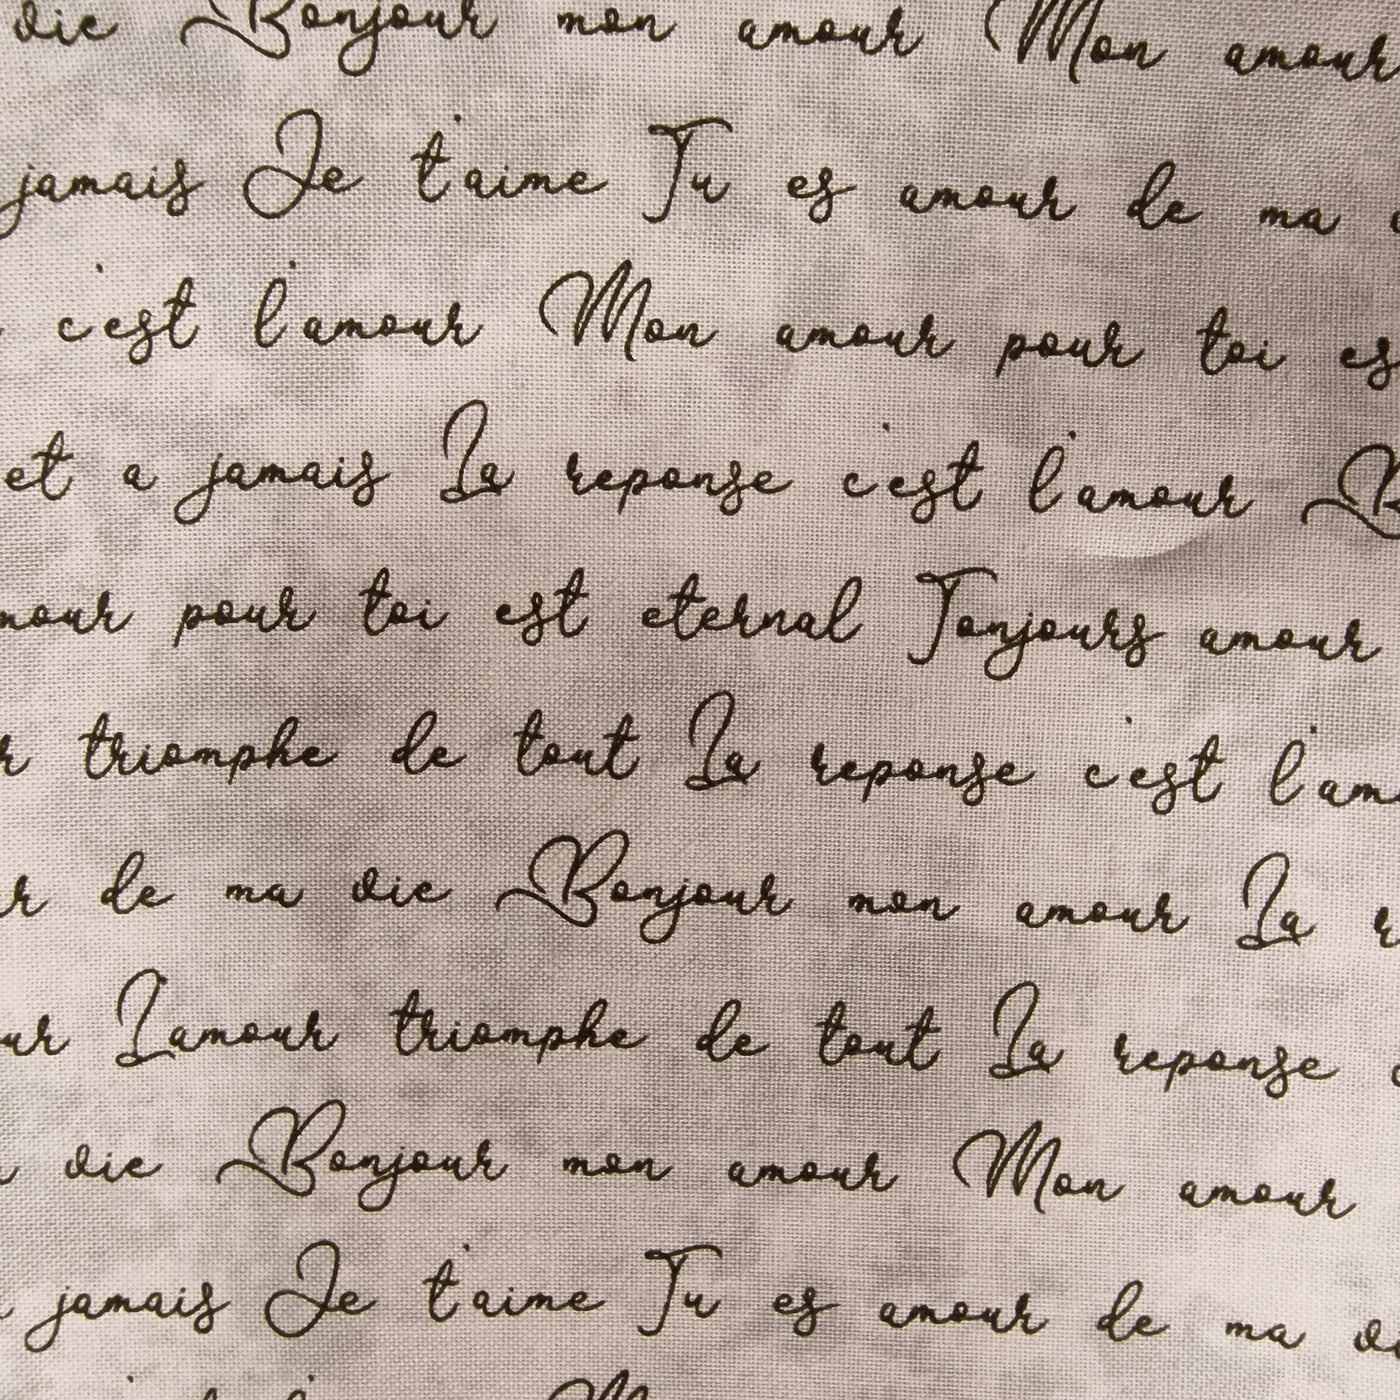 vie Bonjour mon amour Mon amour
jamais Je t'aime Tu es amour de ma
c'est l'amour Mon amour pour toi es
et a jamais La reponse c'est l'amour B
mour pour toi est eternal Tonjours amour
r triomphe de tout La reponse c'est l'am
r de ma vie Bonjour mon amour La r
ur Lamour triomphe de tout La reponse
vie Bonjour mon amour Mon amour
jamais Je t'aime Tu es amour de ma vi